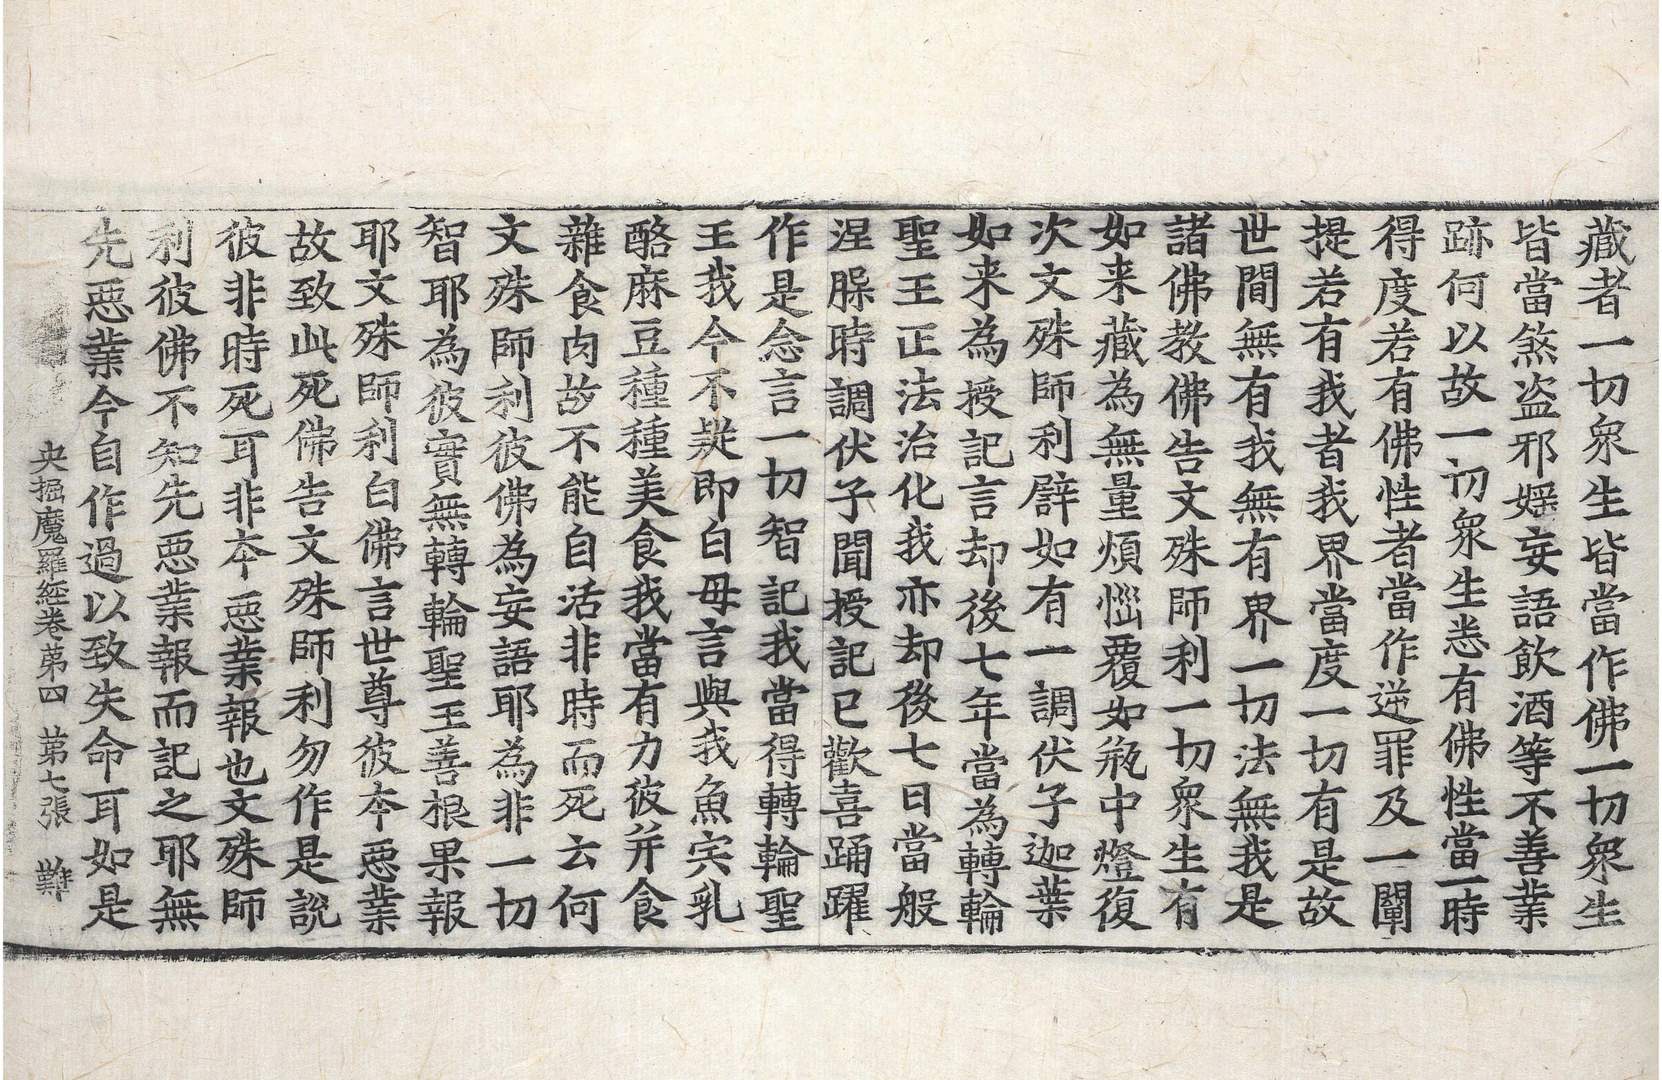 藏者一切衆生皆當作佛一切衆生
皆當煞盗邪婬妄語飲酒等不善業
跡何以故一切衆生悉有佛性當一時
得度若有佛性者當作逆罪及一闡
提若有我者我界當度一切有是故
世間無有我無有界一切法無我是
諸佛教佛告文殊師利一切衆生有
如来藏為無量煩惱覆如瓶中燈復
次文殊師利譬如有一調伏子迦葉
如来為授記言却後七年當為轉輪
聖王正法治化我亦却後七日當般
涅槃時調伏子聞授記已歡喜踊躍
作是念言一切智記我當得轉輪聖
王我今不疑即白母言與我魚宍乳
酪麻豆種種美食我當有力彼并食
雜食肉故不能自活非時而死云何
文殊師利彼佛為妄語耶為非一切
智耶為彼實無轉輪聖王善根果報
耶文殊師利白佛言世尊彼本惡業
故致此死佛告文殊師利勿作是說
彼非時死耳非本惡業報也文殊師
利彼佛不知先惡業報而記之耶無
先惡業今自作過以致失命耳如是
央掘魔羅經卷第四　第七張　難